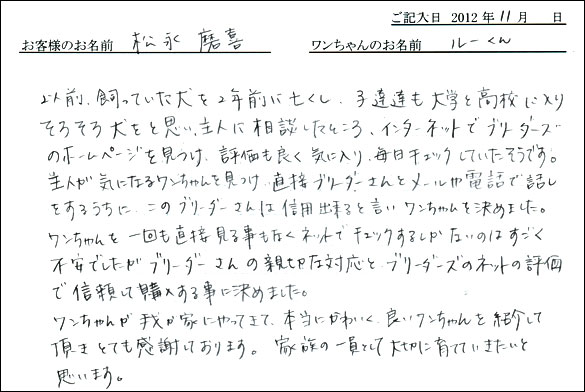 ご記入日 2012 年 11 月　日
お客様のお名前 松永 磨喜 ワンちゃんのお名前 ルーくん
以前、飼っていた犬を2年前に亡くし、子達達も大学と高校に入り
そろそろ犬をと思い、主人に相談したところ、インターネットでブリーダーズ
のホームページを見つけ、評価も良く気に入り、毎日チェックしていたそうです。
主人が気になるワンちゃんを見つけ、直接ブリーダーさんとメールや電話で話し
をするうちに、このブリーダーさんは信用出来ると言いワンちゃんを決めました。
ワンちゃんを一回も直接見る事もなくネットでチェックするしかないのはすごく
不安でしたがブリーダーさんの親切な対応と、ブリーダーズのネットの評価
で信頼して購入する事に決めました。
ワンちゃんが我が家にやってきて、本当にかわいく、良いワンちゃんを紹介して
頂きとても感謝しております。家族の一員として大切に育てていきたいと
思います。